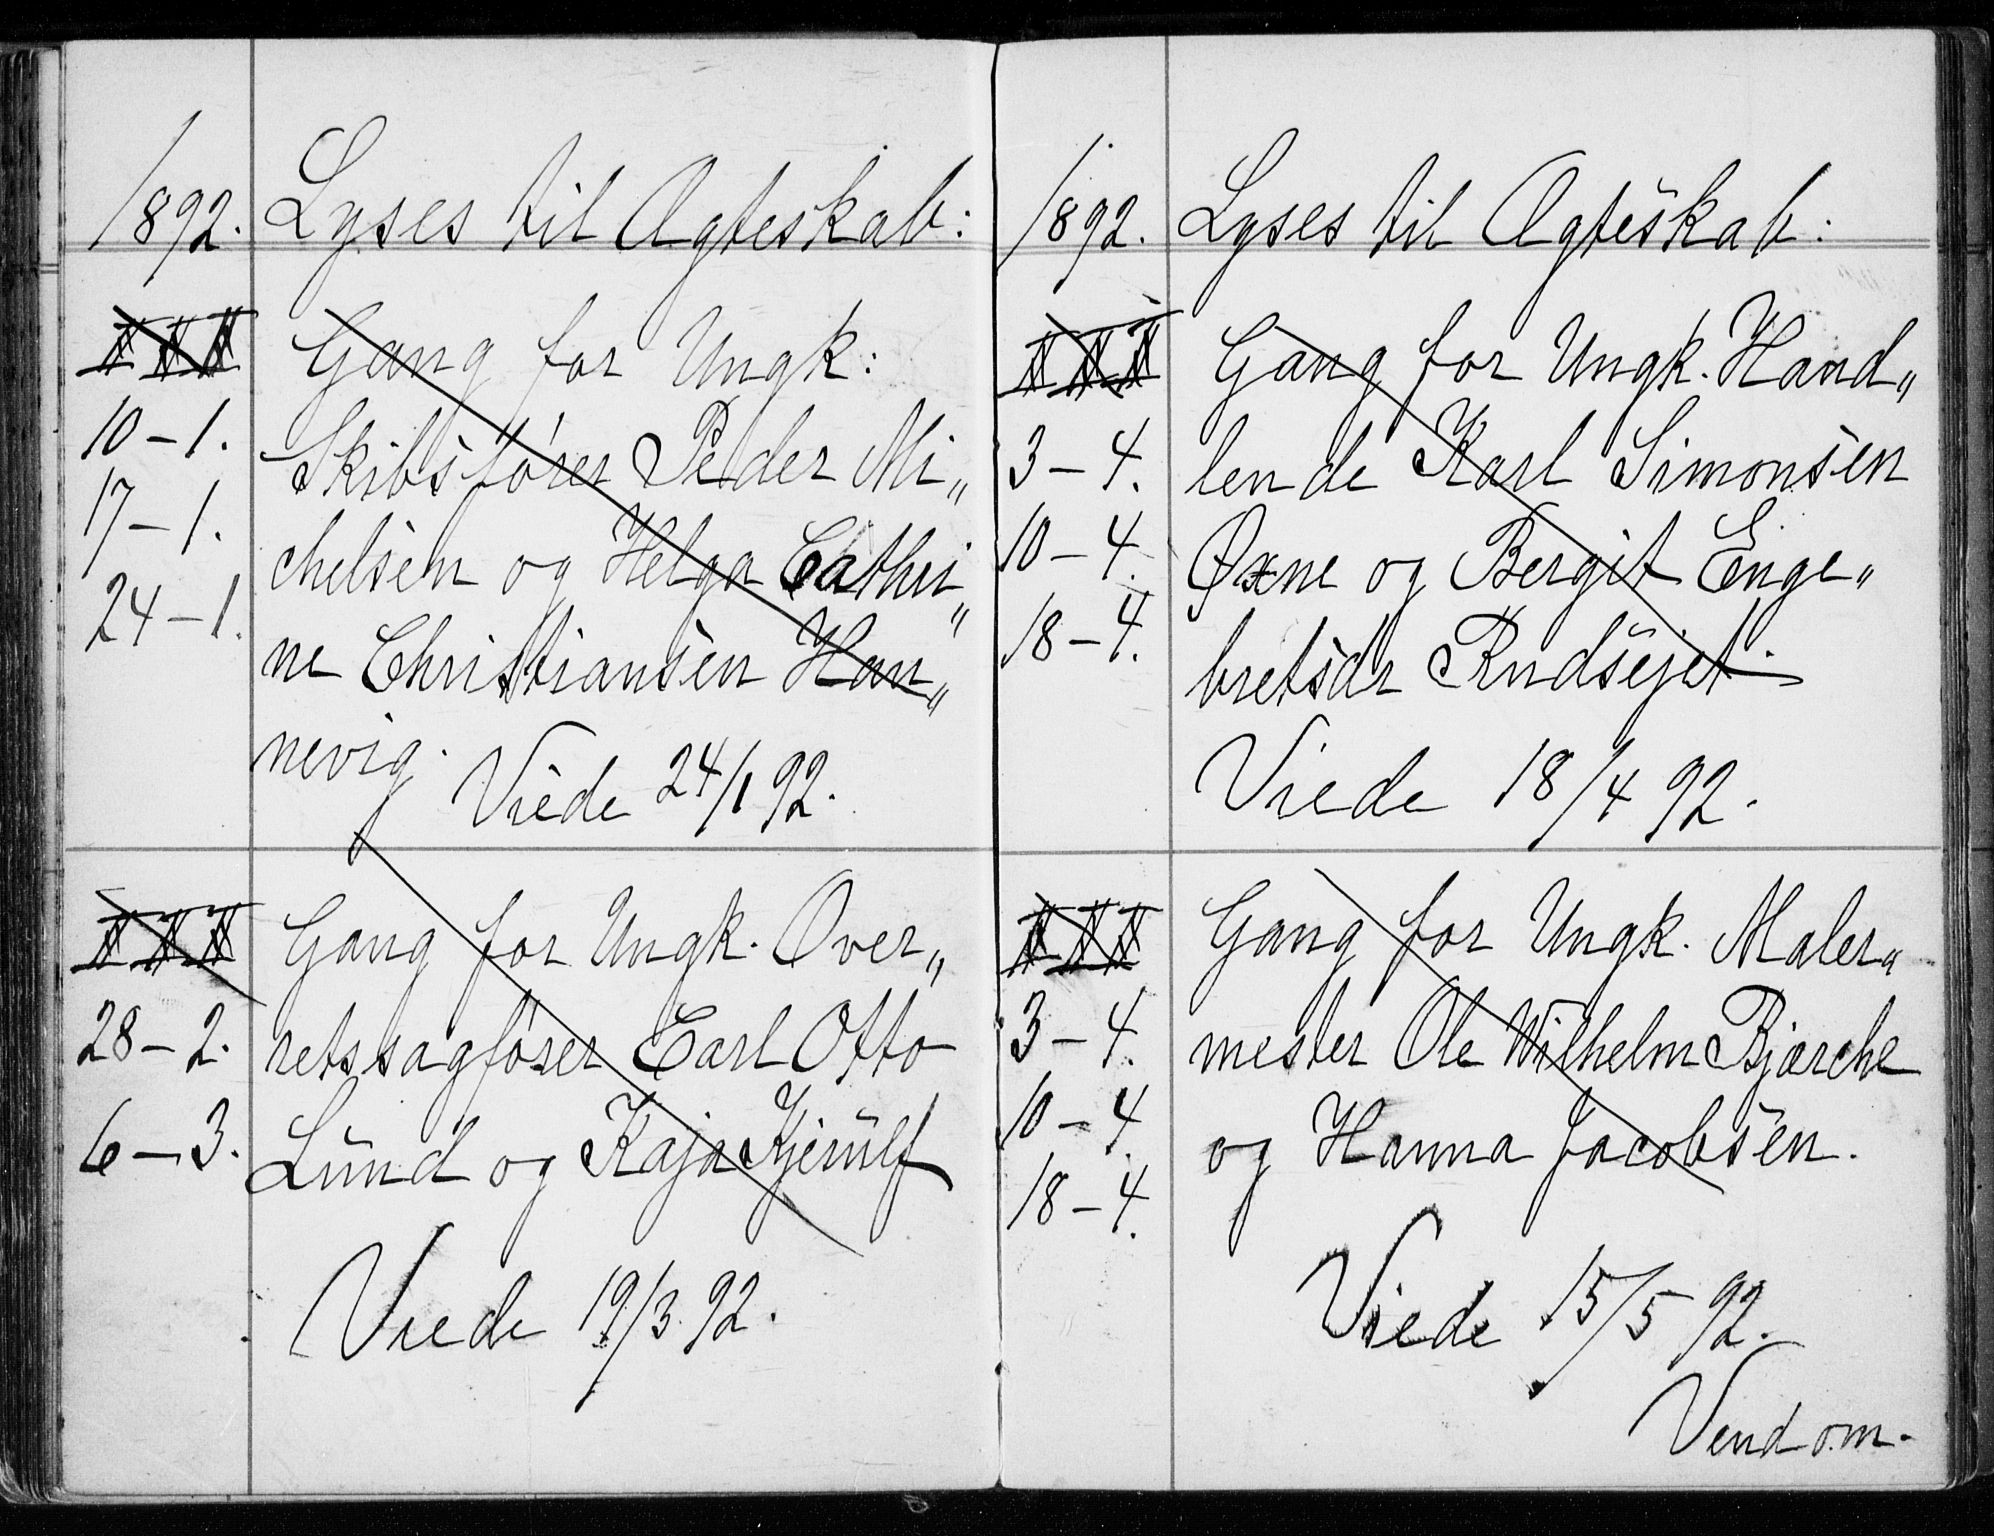 1892. Lyses til Ægteskab:
III Gang for Ungk:
10 – 1. Skibsfører Peder Mi„
17 – 1. chelsen og Helga Cathri„
24 – 1. ne Christiansen Han„
nevig.
Viede 24/1 92.
III Gang for Ungk. Over„
28 – 2. retssagfører Carl Otto
6 – 3. Lund og Kaja Kjerulf
Viede 19/3 92.
1892. Lyses til Ægteskab:
III Gang for Ungk. Hand„
3 – 4. lende Karl Simonsen
10 – 4. Øxne og Bergit Enge„
18 – 4. bretsdr Rudsejet.
Viede 18/4 92.
III Gang for Ungk. Maler„
3 – 4. mester Ole Wilhelm Bjerche
10 – 4. og Hanna Jacobsen.
18 – 4.
Viede 15/5 92.
Vend om.